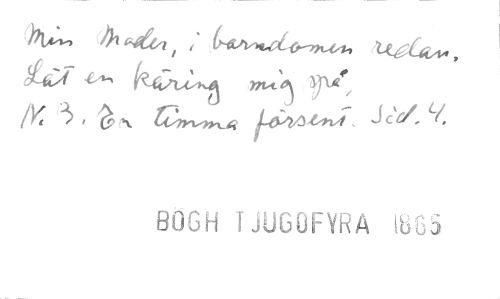 Min Moder, i barndomen redan.
Låt en käring mig spå,
N. 3. En timma försent. Sid. 4.
BÖGH TJUGOFYRA 1865